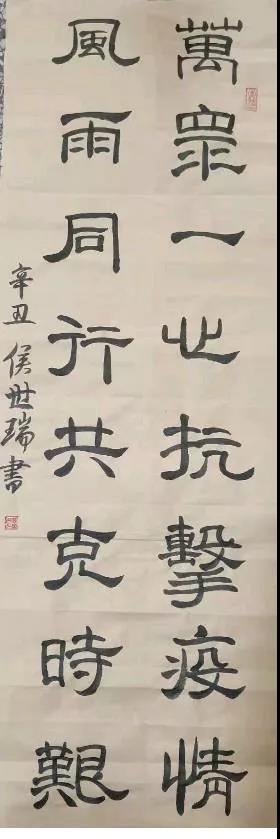 萬眾一心抗擊疫情
風雨同行共克時艱
辛丑 侯世瑞書